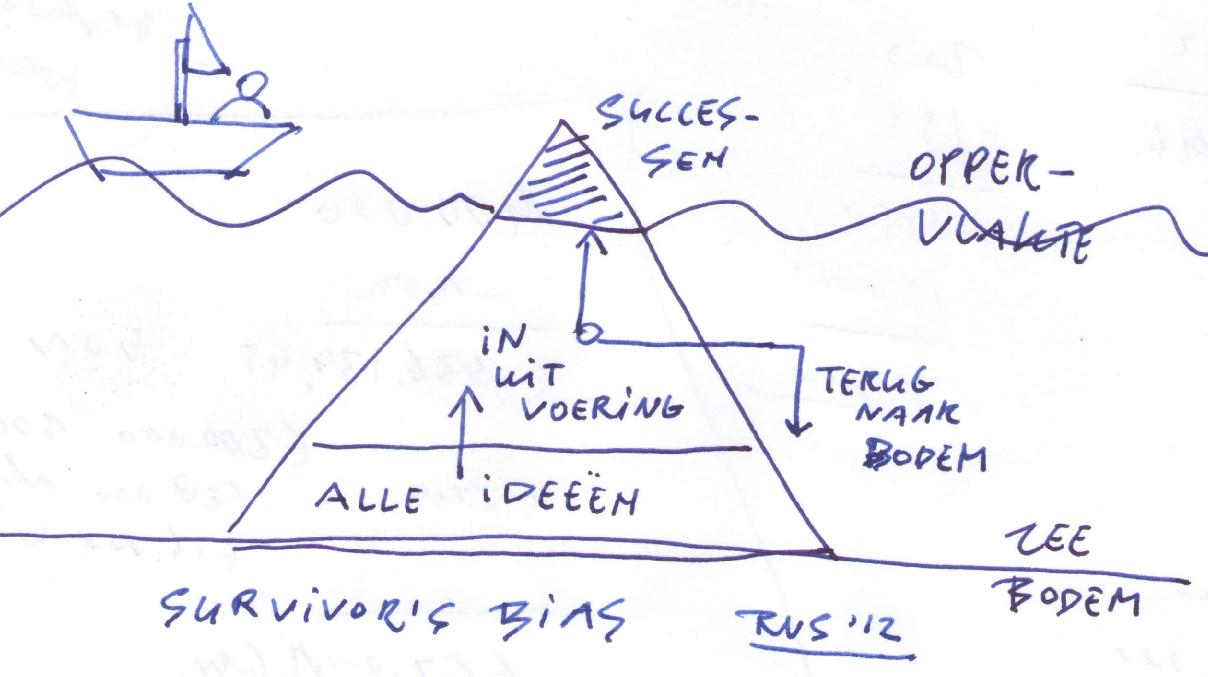 SUCCES-
SEN
OPPER-
VLAKTE
iN
UiT
VOERiNG
TERUG
NAAR
BODEM
ALLE iDEEËN
ZEE
BODEM
SURViVOR'S BiAS
RVS '12